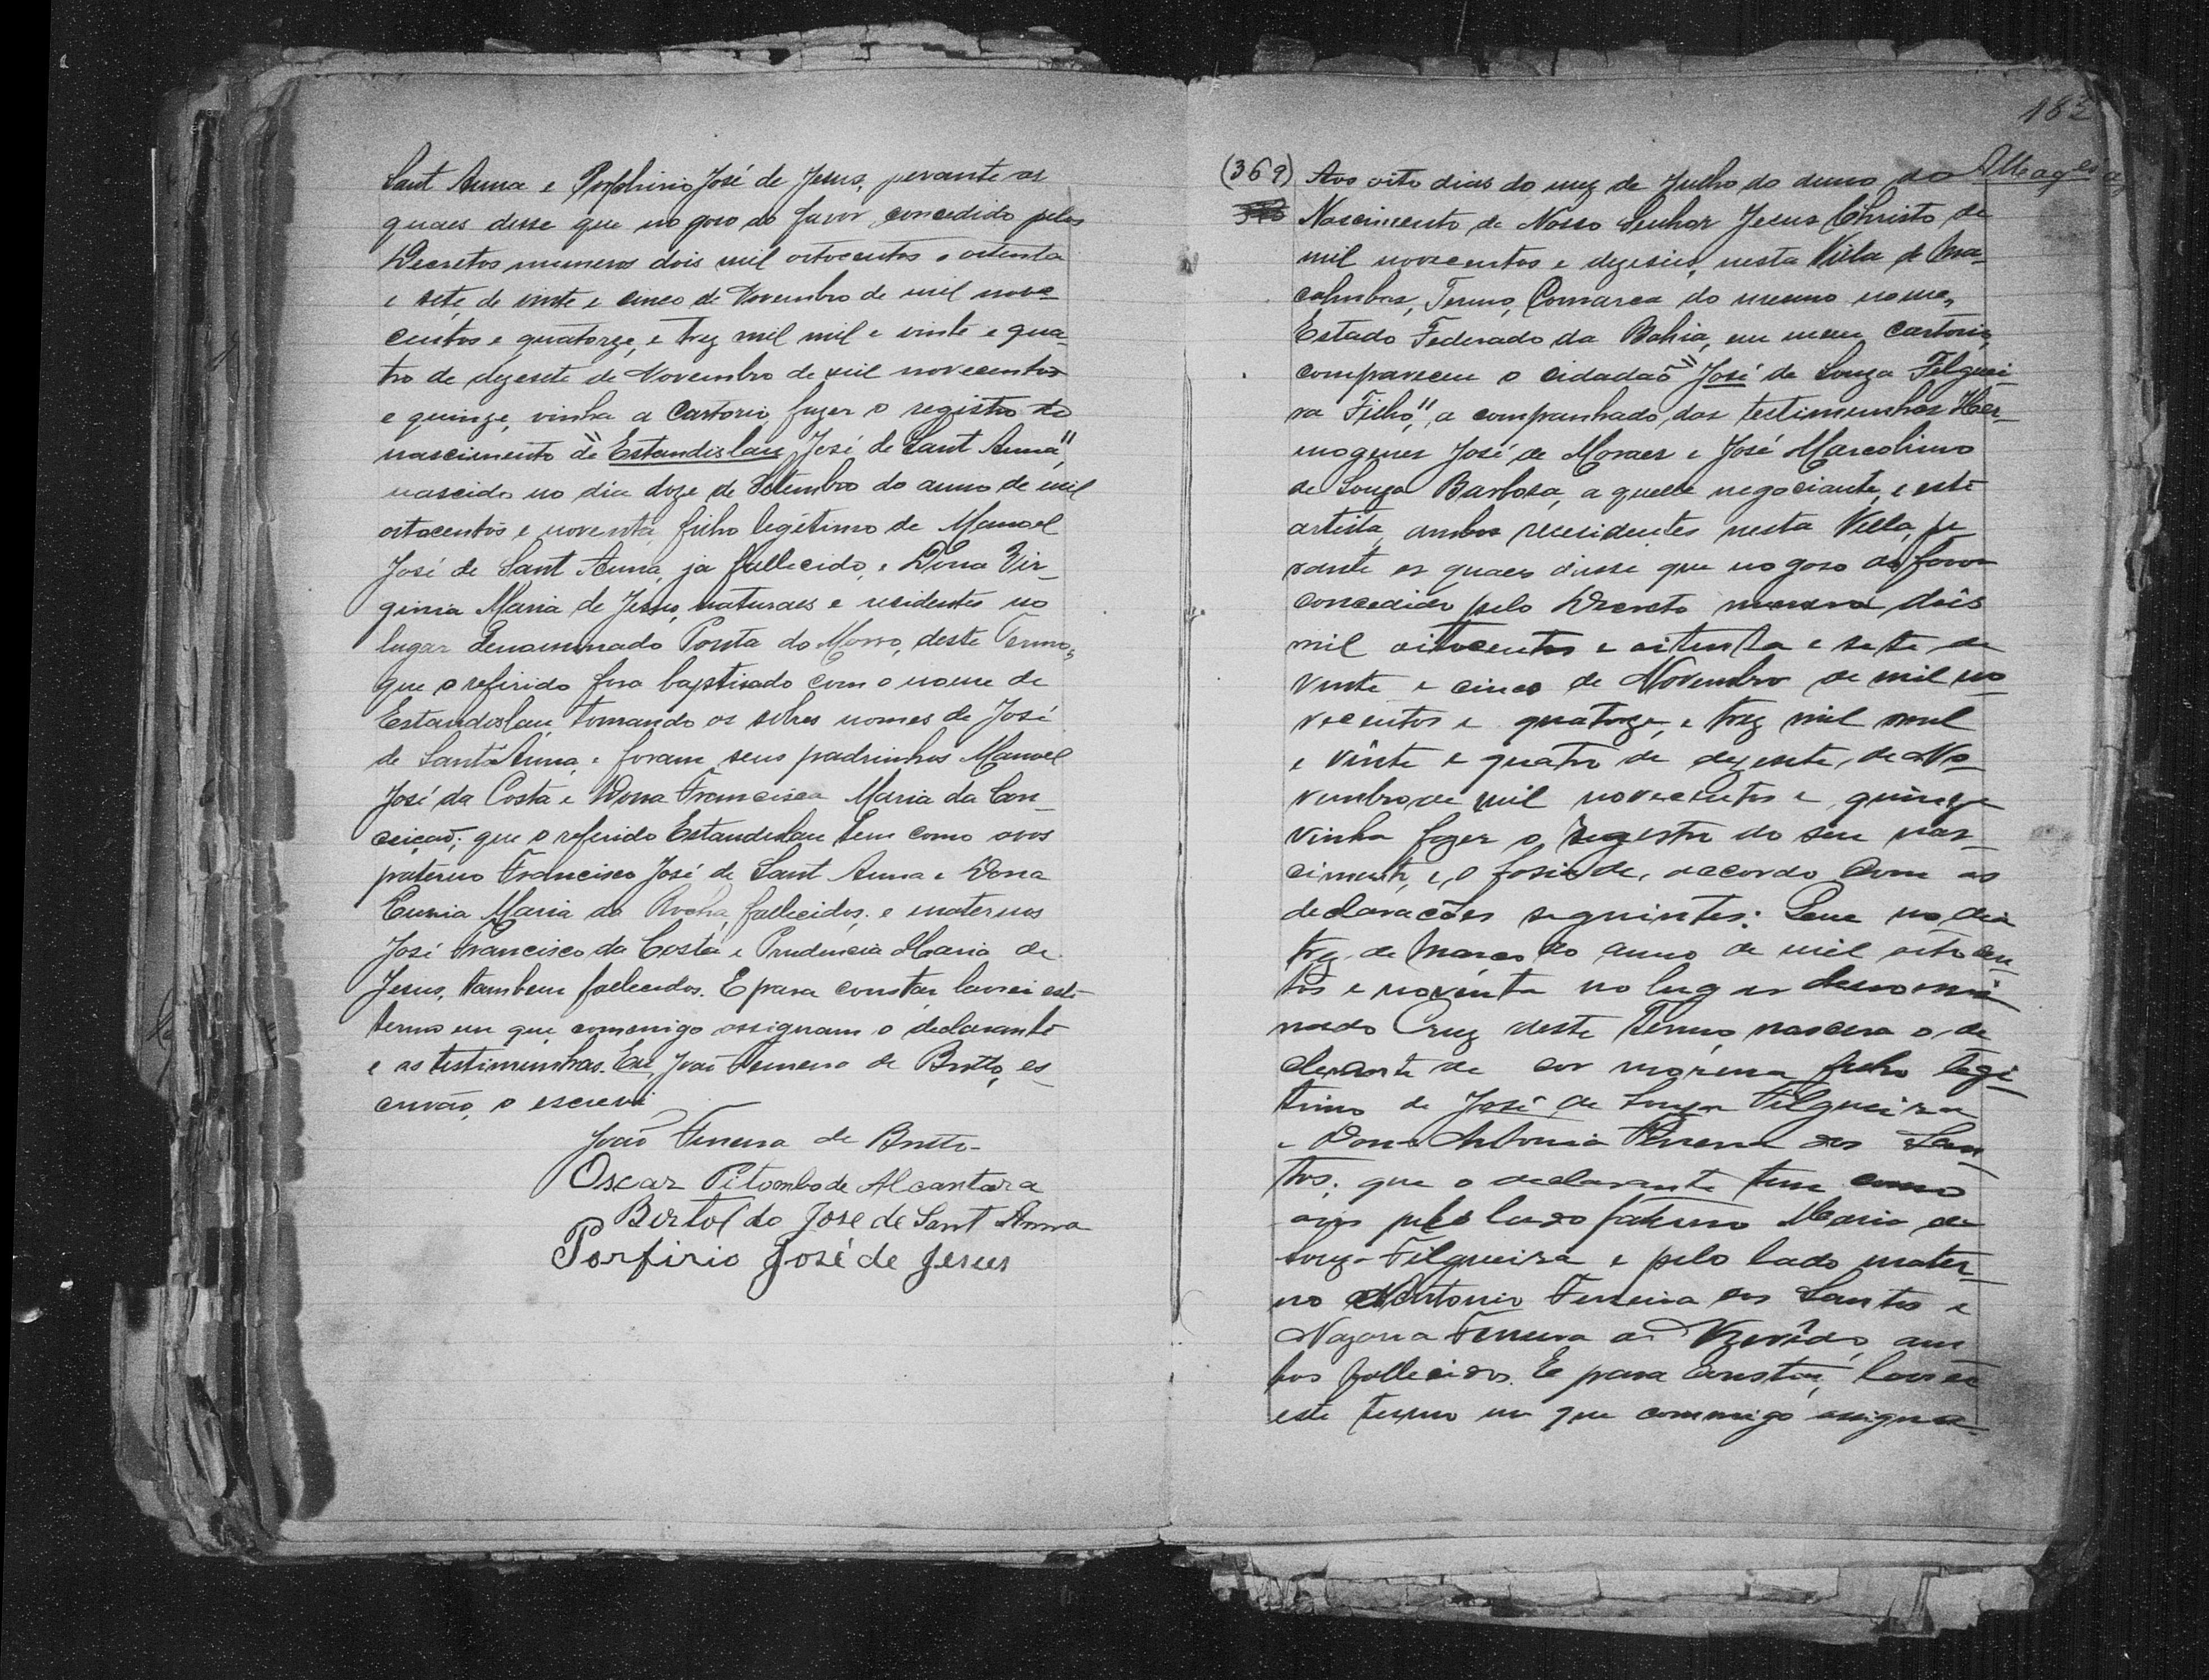 Sant Anna e Porphirio José de Jesus, perante as
quaes disse que no goso do favor concedido pelos
Decretos numeros dois mil oitocentos e oitenta
e sete, de vinte e cinco de Novembro de mil nove-
centos e quatorze, e trez mil mil e vinte e qua-
tro de dezesete de Novembro de mil novecentos
e quinze, vinha a Cartorio fazer o registro do
nascimento de "Estandislau José de Sant Anna",
nascido no dia doze de Setembro do anno de mil
oitocentos e noventa, filho legitimo de Manoel
José de Sant Anna, ja fallecido, e Dona Vir-
ginia Maria de Jesus, naturaes e residentes no
lugar denominado Ponta do Morro, deste Termo,
que o referido fora baptisado com o nome de
Estandislau, tomando os sobres nomes de José
de Sant Anna, e foram seus padrinhos Manoel
José da Costa e Dona Francisca Maria da Con-
ceição; que o referido Estandislau tem como avos
paterno Francisco José de Sant Anna e Dona
Maria da Rocha, fallecidos; e maternos
José Francisco da Costa e Prudencia Maria de
Jesus, tambem fallecidos. E para constar lavrei este
termo em que comigo assignam o declarante
e as testimunhas. Eu, João Ferreira de Britto, es-
crivão, o escrevi
João Ferreira de Britto-
Oscar Pitombo de Alcantara
Bertoldo José de Sant Anna
Porfirio José de Jesus
182
(369) Aos oito dias do mez de Julho do anno do
Nascimento de Nosso Senhor Jesus Christo de
mil novecentos e dezeseis, nesta Villa de Ma-
cahubas, Termo, Comarca do mesmo nome,
Estado Federado da Bahia, em meu Cartorio,
compareceu o cidadão "José de Souza Filguei-
ra Filho", a companhado das testimunhas Her-
mogenes José de Moraes e José Marcolino
de Souza Barbosa, a quelle negociante, e este
artista, ambos recesidentes nesta Villa, pe
rante os quaes disse que no goso do favor
concedido pelo Decreto numero dois
mil oitocentos e oitenta e sete de
vinte e cinco de Novembro de mil no-
vecentos e quatorze, e trez mil mil
e vinte e quatro de dezesete, de No-
vembro de mil novecentos e quinze
vinha fazer o registro do seu nas-
cimento, e o fasia de accordo com as
declarações seguintes: Que no dia
trez de Março do anno de mil oitocen-
tos e noventa no lugar denomi-
nado Cruz deste Termo, nascera o de
clarante de cor morena filho legi-
timo de José de Souza Filgueira
e Dona Antonia Ferreira dos San-
tos; que o declarante tem como
avós pelo lado paterno Maria de
Souza Filgueira e pelo lado mater-
no Antonio Ferreira dos Santos e
Ferreira de Azevêdo, am
bos fallecidos. E para constar, lavrei
este termo em que commigo assigna-